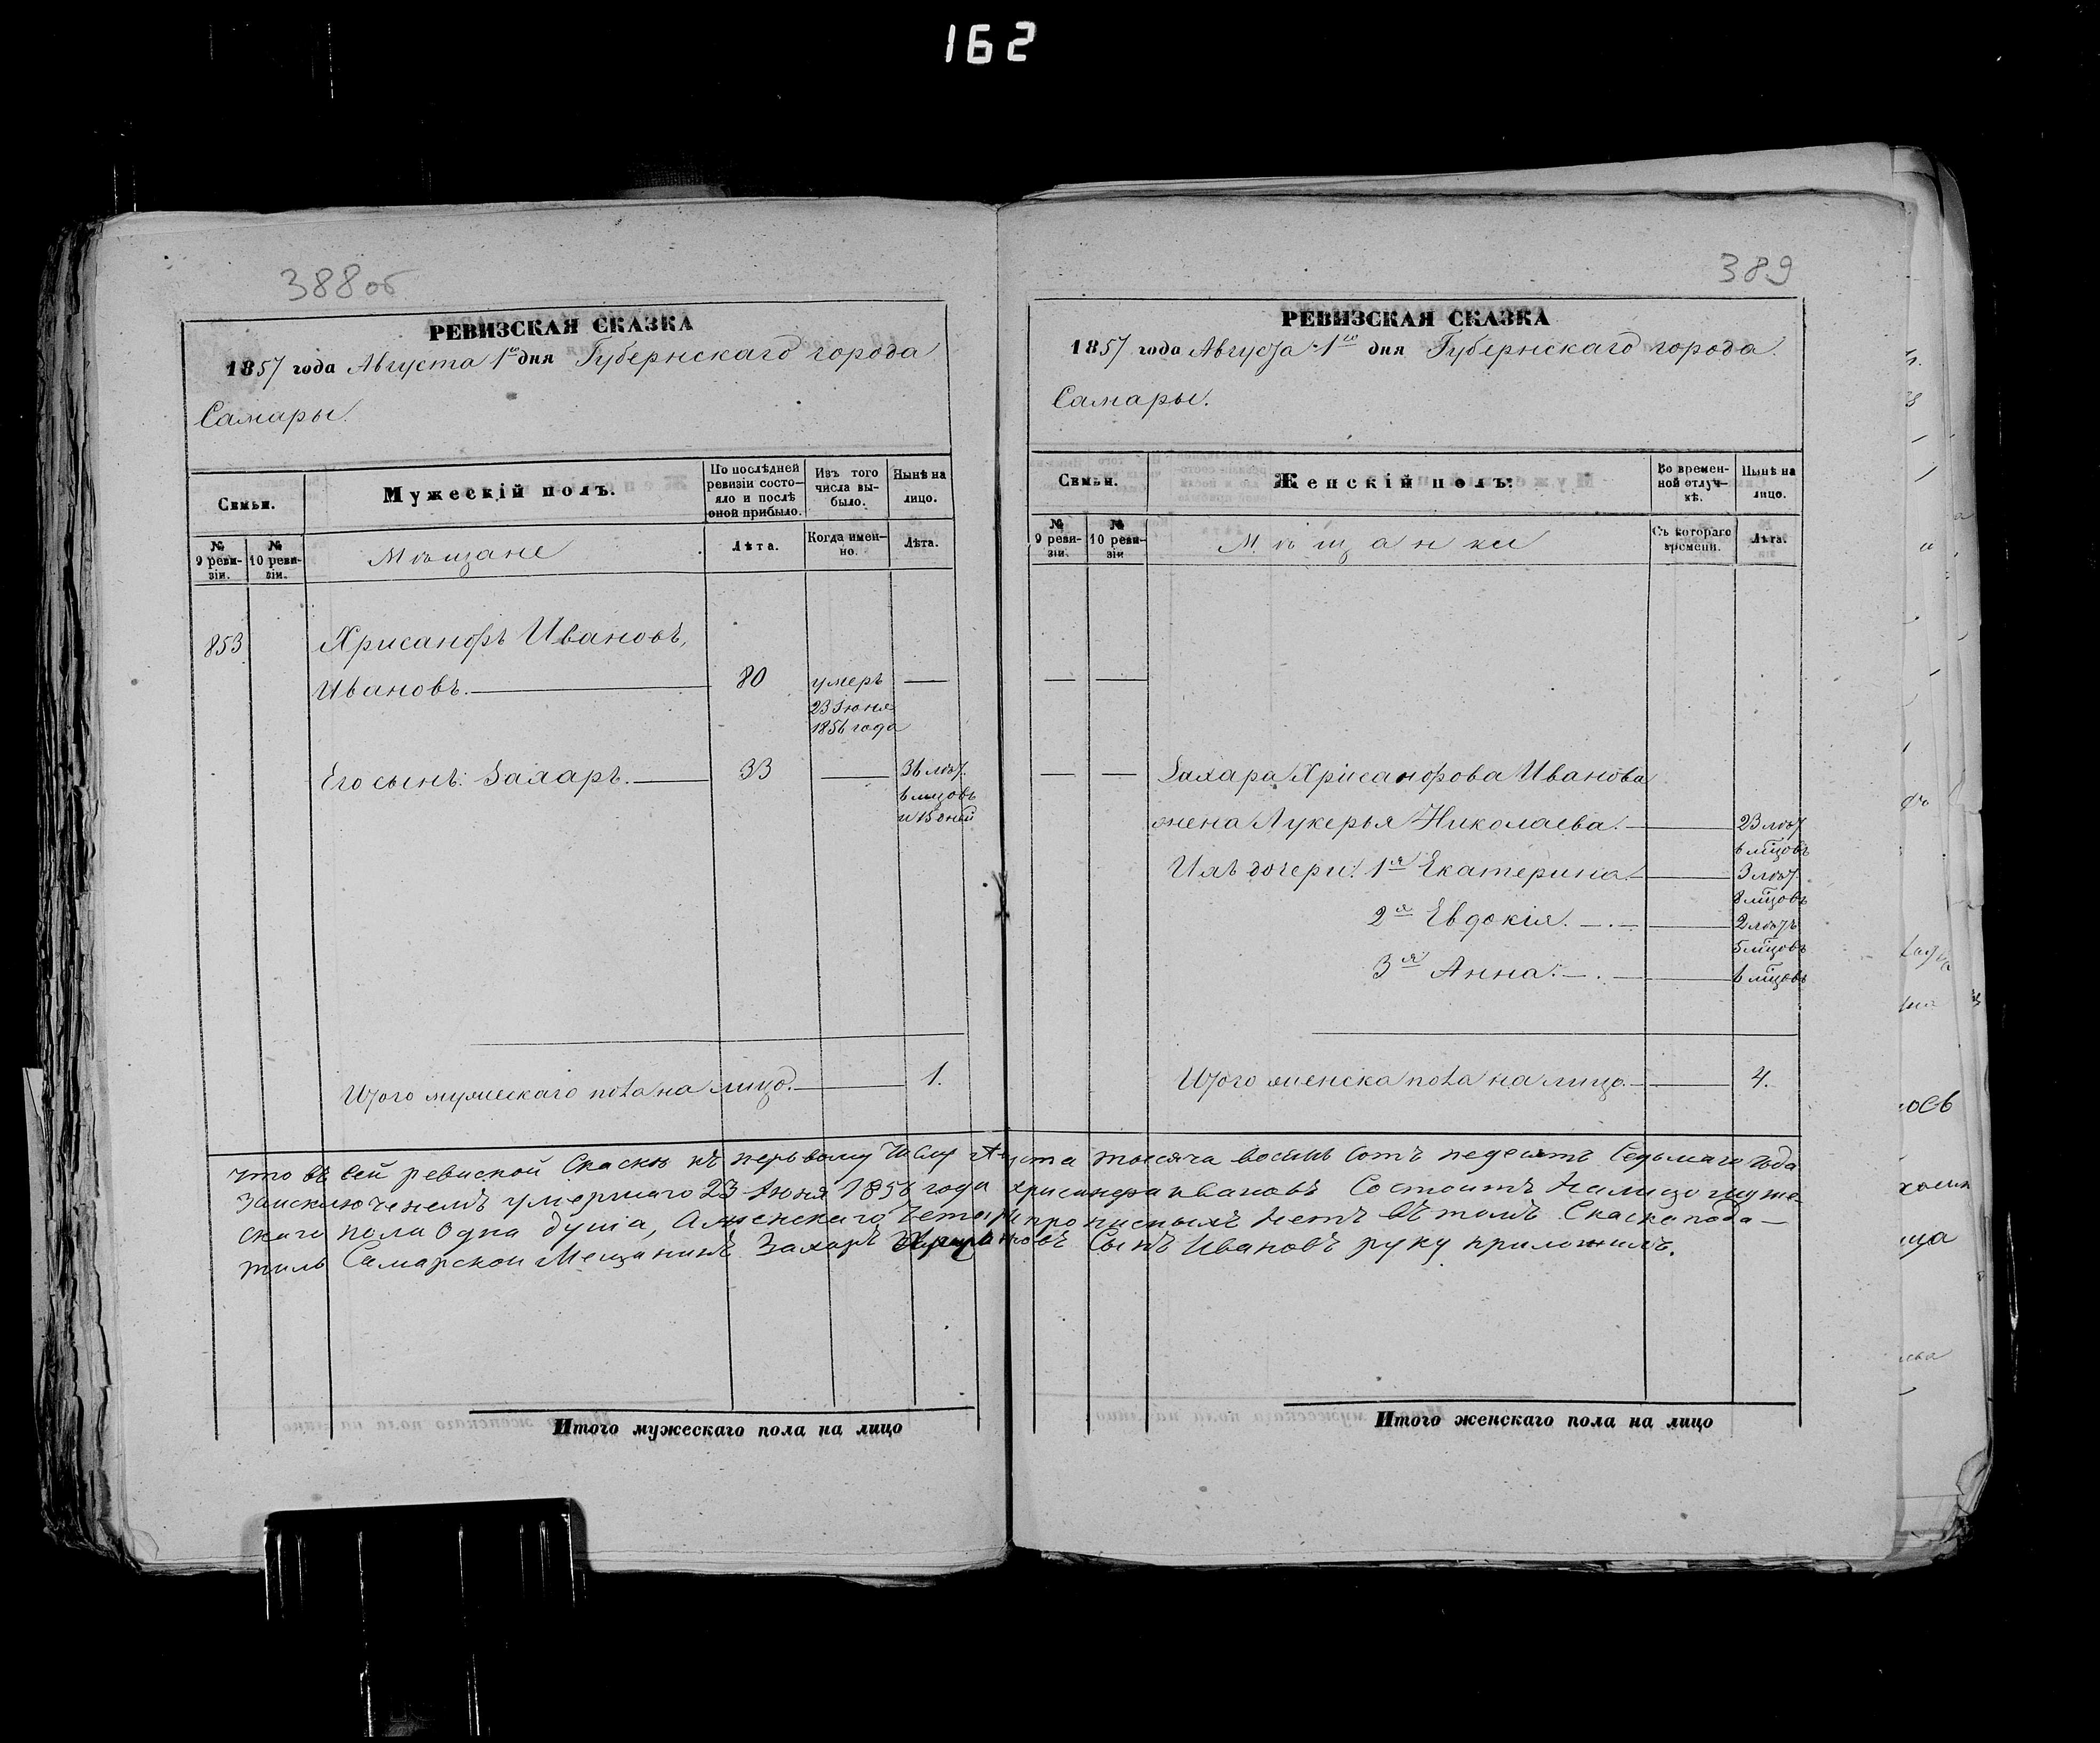 162
388об
РЕВИЗСКАЯ СКАЗКА
1857 года Августа 1го дня Губернскаго города
Самары.
Семьи.
Мужескій полъ.
По послѣдней ревизіи состояло и послѣ оной прибыло.
Изъ того числа выбыло.
Нынѣ на лицо.
№ 9 ревизіи.
№ 10 ревизіи.
Мѣщане
Лѣта.
Когда именно.
Лѣта.
853
Хрисанфъ Ивановъ,
Ивановъ. — 80 умеръ —
23 Іюня
1856 года
Его сынъ: Захаръ. — 33 — 36 лѣт.
6 мцовъ
и 15 дней
Итого мужескаго пола на лицо. — 1.
389
РЕВИЗСКАЯ СКАЗКА
1857 года Августа 1го дня Губернскаго города
Самары.
Семьи.
Женскій полъ.
Во временной отлучкѣ.
Нынѣ на лицо.
№ 9 ревизіи.
№ 10 ревизіи
Мѣщанки
Съ котораго времени.
Лѣта.
— —
— — Захара Хрисанфова Иванова
жена Лукерья Николаева. — 23 лѣт
6 мцовъ
Ихъ дочери: 1я Екатерина. — 3 лѣт.
8 мцовъ
2я Евдокія. — 2 лѣтъ
5 мцовъ
3я Анна. — 6 мцовъ
Итого женска пола на лицо. — 4.
что въ сей ревиской Скаски къ перьвому Числу Августа тысяча восемь Сотъ педесятъ Седьмаго года
заисключенемъ умершаго 23 Июня 1856 года хрисанфа ивановъ Состоитъ Налицо муже-
скаго пола Одна душа, Аженскаго Четыри прописныхъ Нетъ Въ томъ Скаска пода-
тиль Самарской Мещанинъ Захаръ Сынъ Ивановъ руку приложилъ.
Итого мужескаго пола на лицо
Итого женскаго пола на лицо